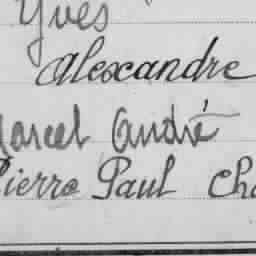 Yves
Alexandre
Marcel André
Pierre Paul Cha